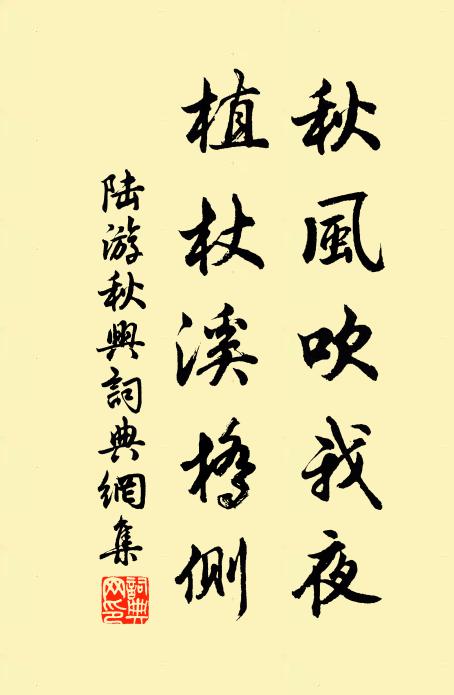 秋風吹我夜
植杖溪橋側
陸游秋興詞典網集
詞典網印